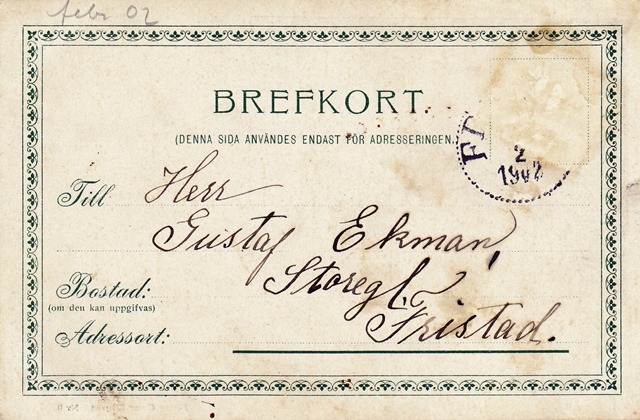 febr 02
BREFKORT.
(DENNA SIDA ANVÄNDES ENDAST FÖR ADRESSERINGEN.)
2
1902
Till Herr
Gustaf Ekman,
Storegl.
Bostad:
(om den kan uppgifvas)
Fristad.
Adressort: